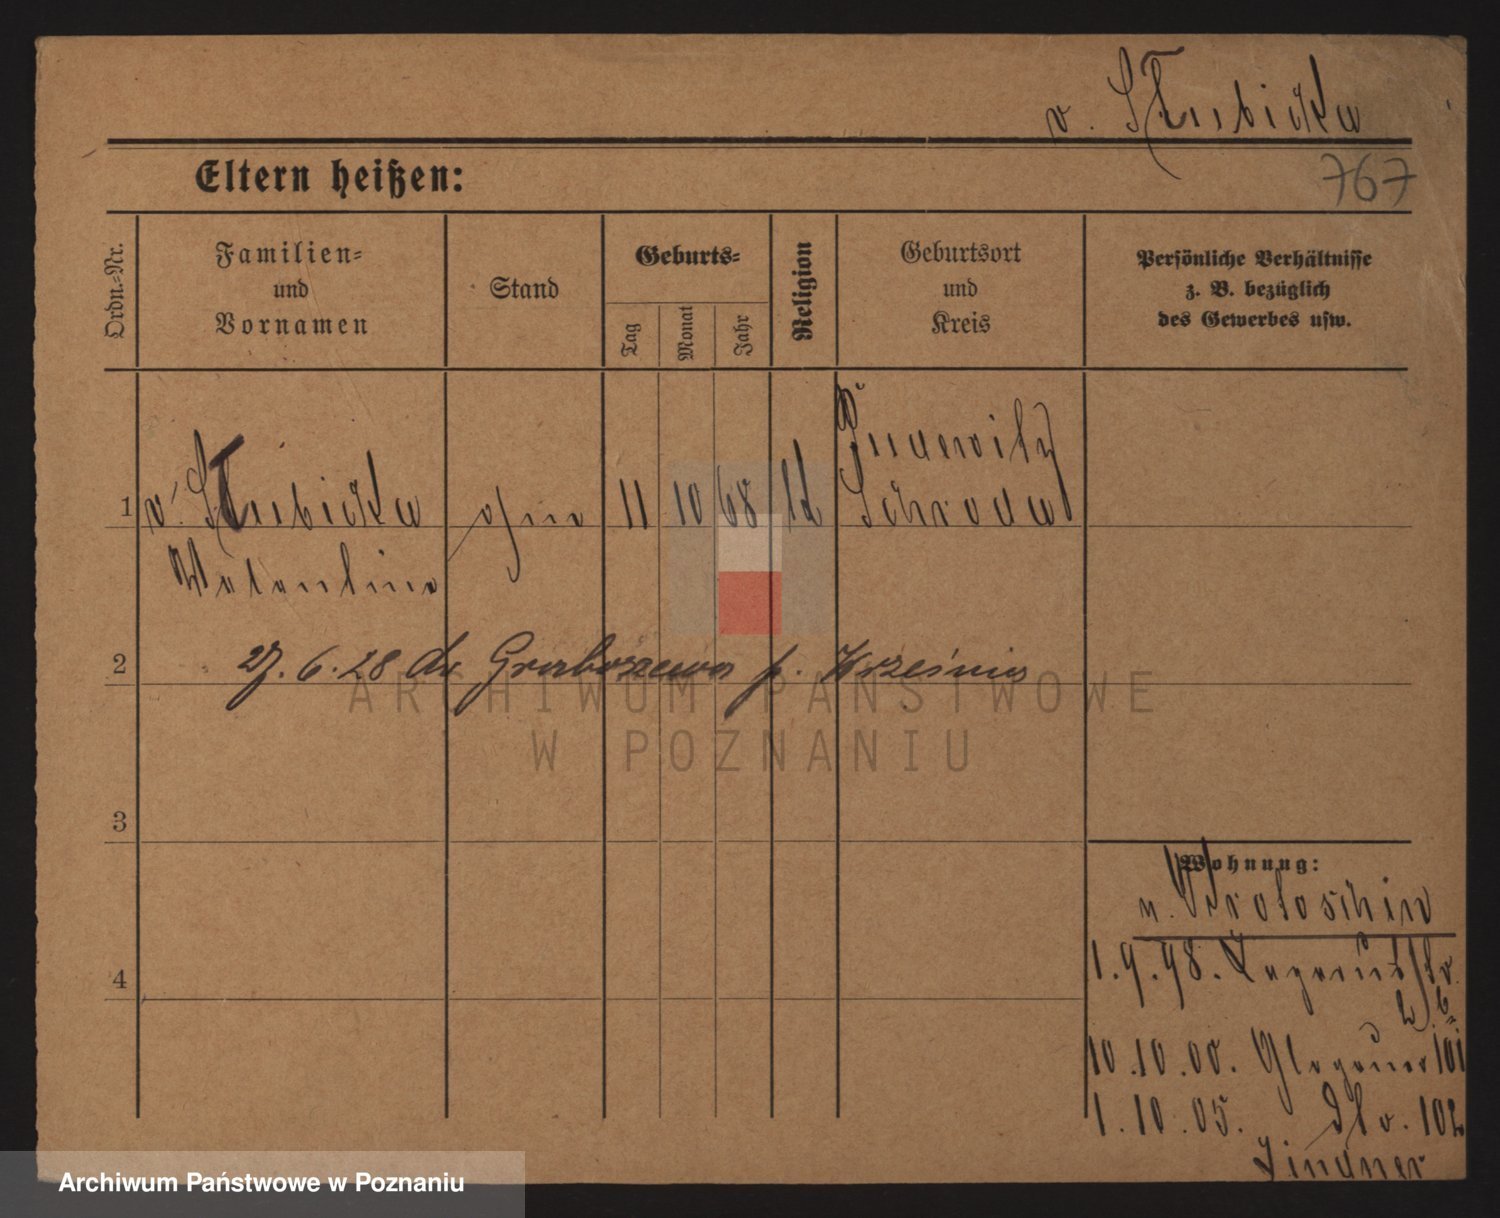 v. Skrbicka
767
Eltern heißen:
Ordn.-Nr.
Familien-
und
Vornamen
Stand
Geburts-
Tag
Monat
Jahr
Religion
Geburtsort
und
Kreis
Persönliche Verhältnisse
z. B. bezüglich
des Gewerbes usw.
Pudewitz
1
11 10 68 Schroda
Valentine
2
27. 6. 28 do Graboszewo p. Krześnio
ARCHIWUM PAŃSTWOWE
W POZNANIU
3
Wohnung:
v. Krotoschin
1.9.98.
4
10.10.00. Glogauer 101
1.10.05. 102
Lindner
Archiwum Państwowe w Poznaniu